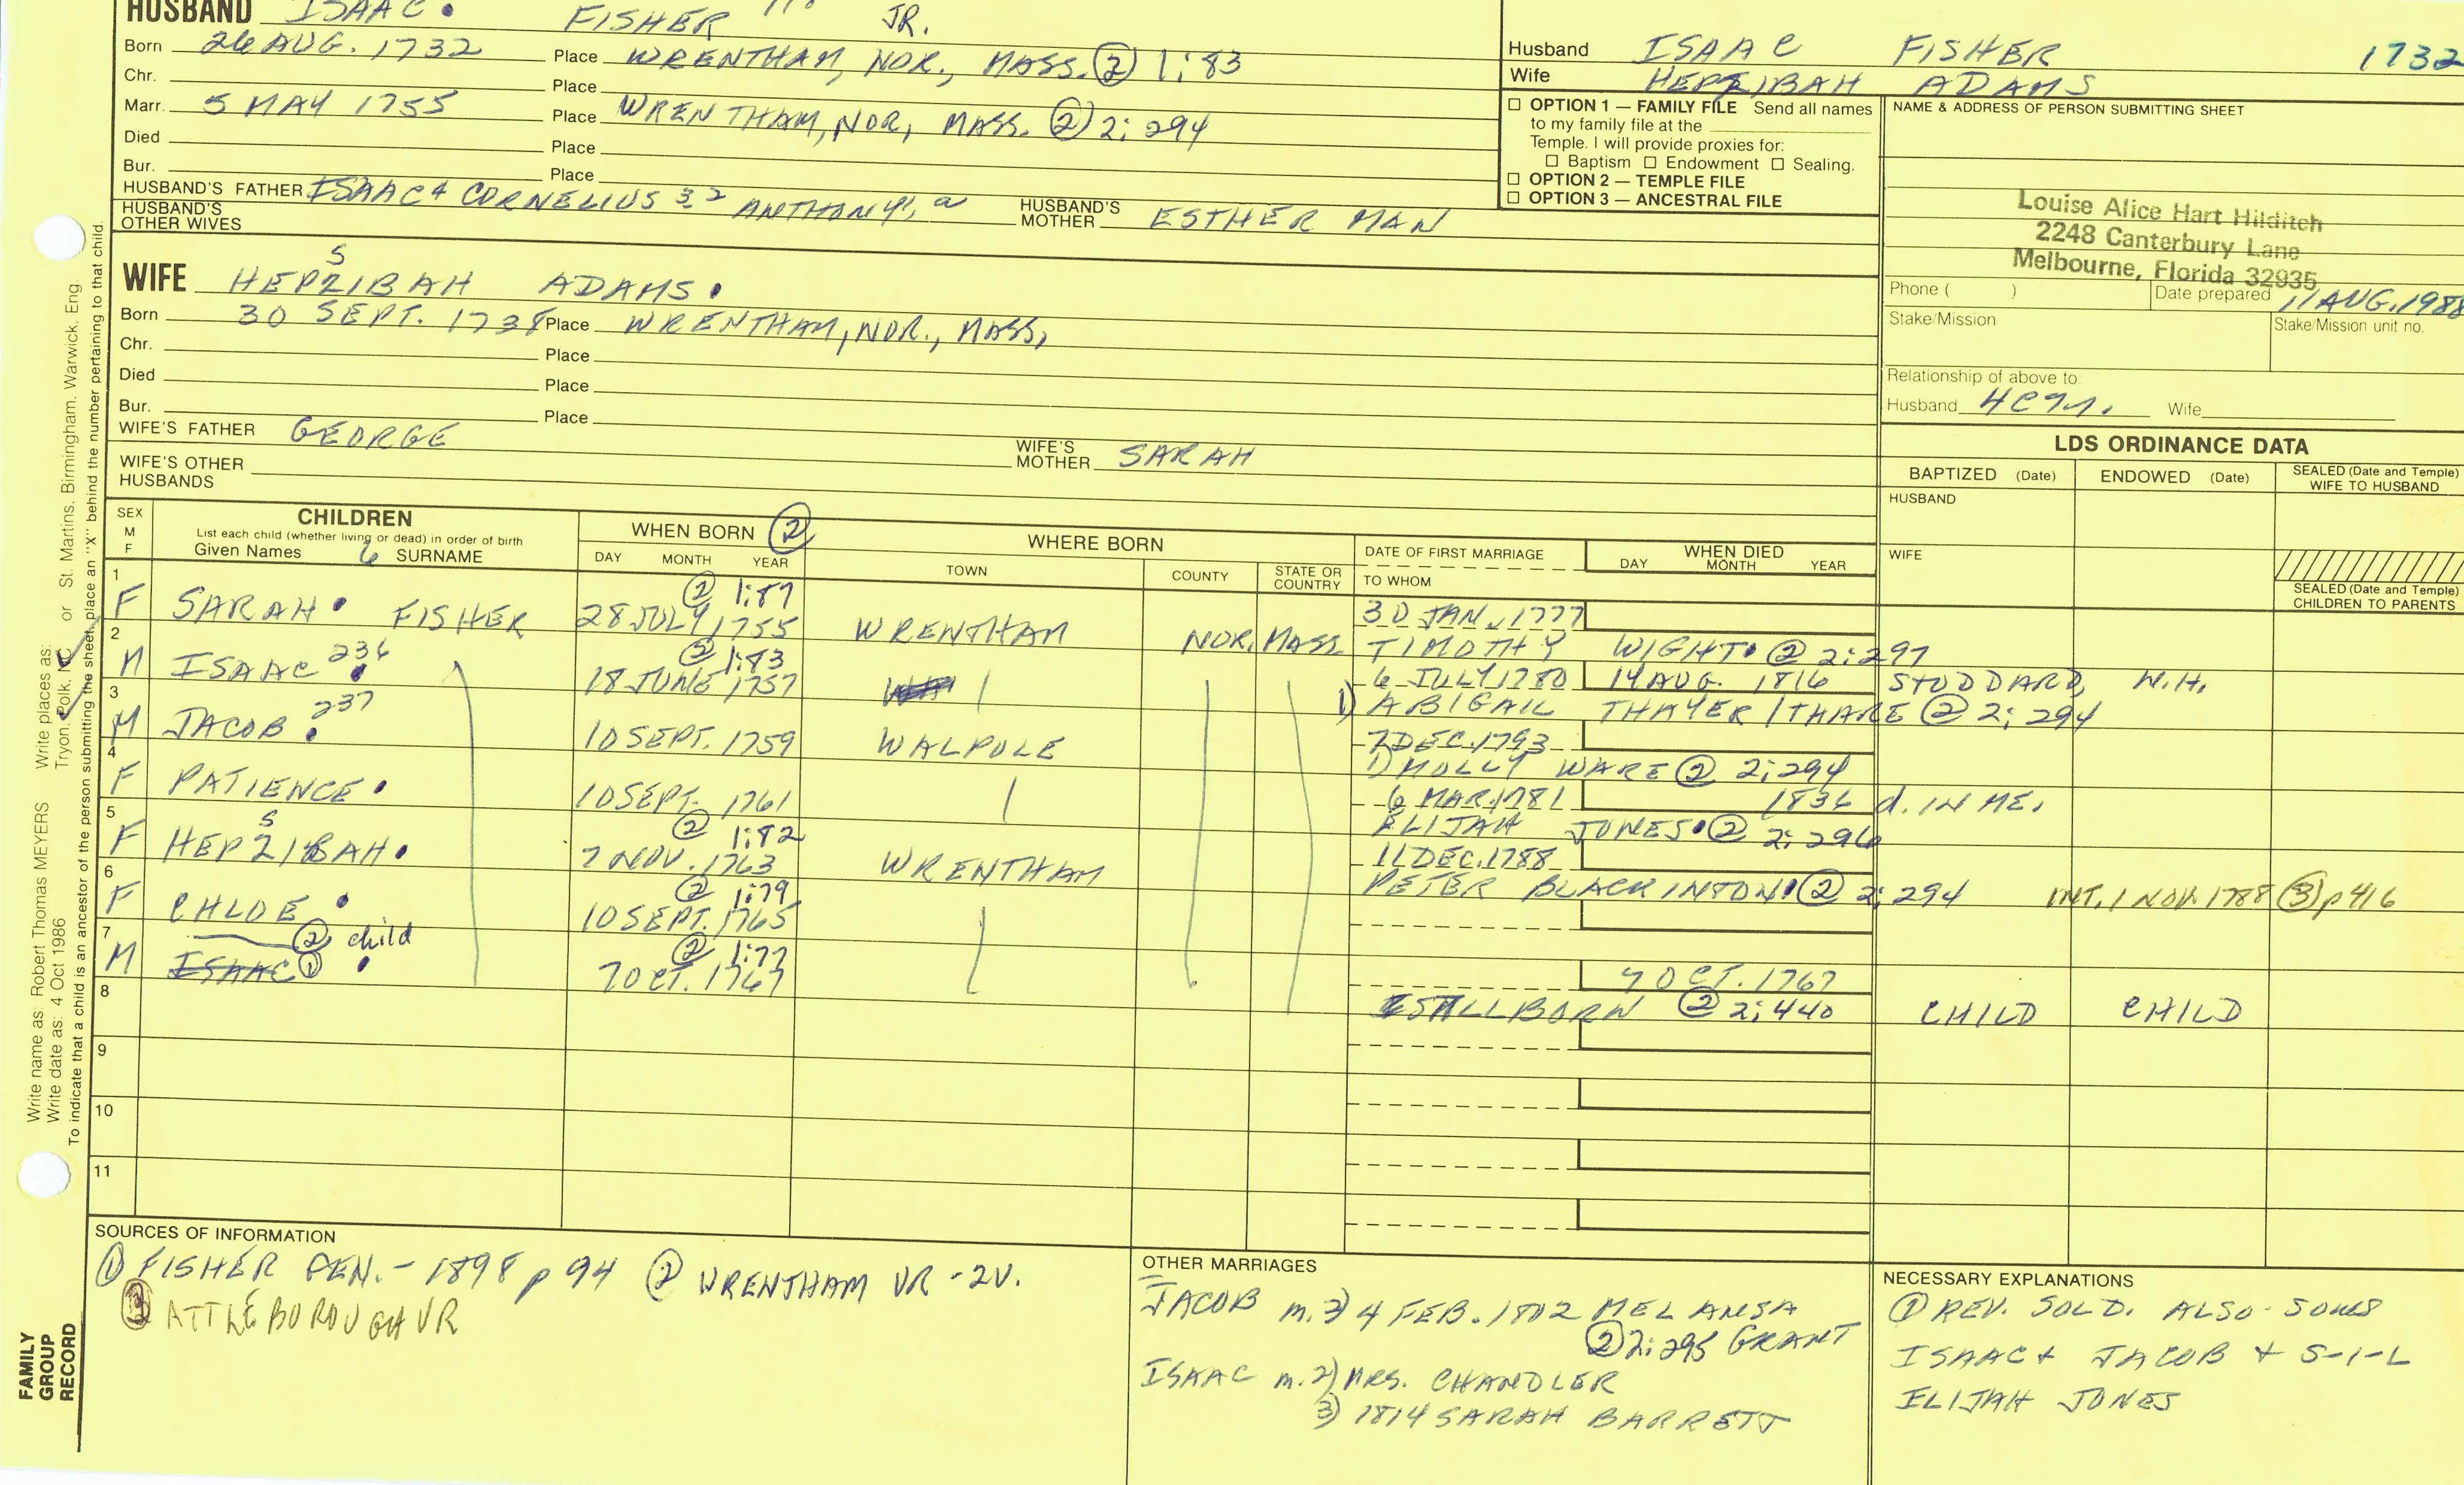 HUSBAND ISAAC. FISHER JR.
Born 26 AUG. 1732 Place WRENTHAM, NOR., MASS. ② 1:83
Chr. Place
Marr. 5 MAY 1755 Place WRENTHAM, NOR, MASS. ② 2:294
Died Place
Bur. Place
HUSBAND'S FATHER ISAAC4 CORNELIUS 3,2 ANTHONY1, a HUSBAND'S MOTHER ESTHER MAN
HUSBAND'S OTHER WIVES
Husband ISAAC FISHER 1732
Wife HEPZIBAH ADAMS
☐ OPTION 1 — FAMILY FILE Send all names
to my family file at the
Temple. I will provide proxies for:
☐ Baptism ☐ Endowment ☐ Sealing.
☐ OPTION 2 — TEMPLE FILE
☐ OPTION 3 — ANCESTRAL FILE
NAME & ADDRESS OF PERSON SUBMITTING SHEET
Louise Alice Hart Hilditch
2248 Canterbury Lane
Melbourne, Florida 32935
Phone ( ) Date prepared 11 AUG. 1988
Stake/Mission Stake/Mission unit no.
Relationship of above to:
Husband Wife
S
WIFE HEPZIBAH ADAMS.
Born 30 SEPT. 1738 Place WRENTHAM, NOR., MASS,
Chr. Place
Died Place
Bur. Place
WIFE'S FATHER GEORGE WIFE'S MOTHER SARAH
WIFE'S OTHER HUSBANDS
LDS ORDINANCE DATA
BAPTIZED (Date) ENDOWED (Date) SEALED (Date and Temple) WIFE TO HUSBAND
HUSBAND
WIFE
SEALED (Date and Temple) CHILDREN TO PARENTS
SEX M F
CHILDREN
List each child (whether living or dead) in order of birth
Given Names 6 SURNAME
WHEN BORN ②
DAY MONTH YEAR
WHERE BORN
TOWN COUNTY STATE OR COUNTRY
DATE OF FIRST MARRIAGE
TO WHOM
WHEN DIED
DAY MONTH YEAR
② 1:87
1 F SARAH. FISHER 28 JULY 1755 WRENTHAM NOR. MASS. 30 JAN. 1777
TIMOTHY WIGHT. ② 2:297
② 1:83
2 M ISAAC 236 18 JUNE 1757 6 JULY 1780 14 AUG. 1816 STODDARD, N.H.
1) ABIGAIL THAYER/THARE ② 2:294
3 M JACOB 237 10 SEPT. 1759 WALPOLE 7 DEC. 1793
1) MOLLY WARE ② 2:294
4 F PATIENCE. 10 SEPT. 1761 6 MAR. 1781 1836 d. IN ME.
ELIJAH JONES. ② 2:296
S ② 1:82
5 F HEPZIBAH. 7 NOV. 1763 WRENTHAM 11 DEC. 1788
PETER BLACKINTON. ② 2:294 INT. 1 NOV. 1788 ③ p 416
② 1:79
6 F CHLOE. 10 SEPT. 1765
② child ② 1:77
7 M ISAAC ① 7 OCT. 1767 7 OCT. 1767
STILLBORN ② 2:440 CHILD CHILD
8
9
10
11
SOURCES OF INFORMATION
① FISHER GEN. - 1898 p 94 ② WRENTHAM VR - 2V.
③ ATTLEBOROUGH VR
OTHER MARRIAGES
JACOB m. 2) 4 FEB. 1802 MELANSA
② 2:295 GRANT
ISAAC m. 2) MRS. CHANDLER
3) 1814 SARAH BARRETT
NECESSARY EXPLANATIONS
① REV. SOLD. ALSO SONS
ISAAC + JACOB + S-I-L
ELIJAH JONES
Write name as: Robert Thomas MEYERS Write places as: Tryon, Polk, NC or St. Martins, Birmingham, Warwick, Eng
Write date as: 4 Oct 1986
To indicate that a child is an ancestor of the person submitting the sheet, place an "X" behind the number pertaining to that child.
FAMILY
GROUP
RECORD